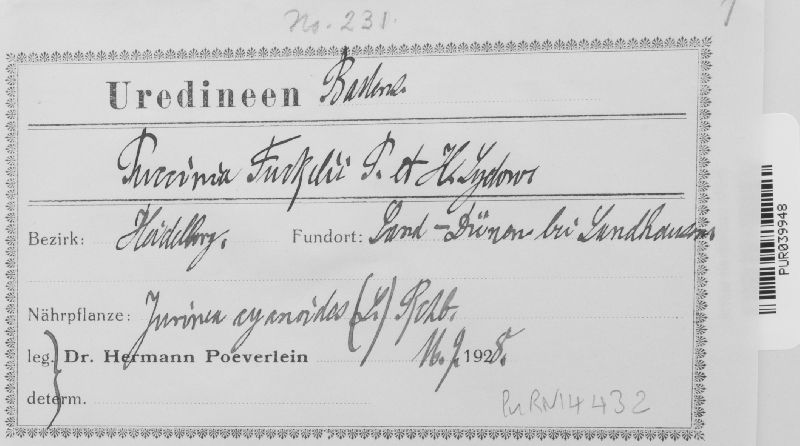 No. 231.
Uredineen Badens.
Puccinia Fuckelii P. et H. Sydow.
Bezirk: Heidelberg. Fundort: Sand-Dünen bei Sandhausen.
Nährpflanze: Jurinea cyanoides (L.) Rchb.
leg. Dr. Hermann Poeverlein 1928.
determ.
PURN14432
PUR039948